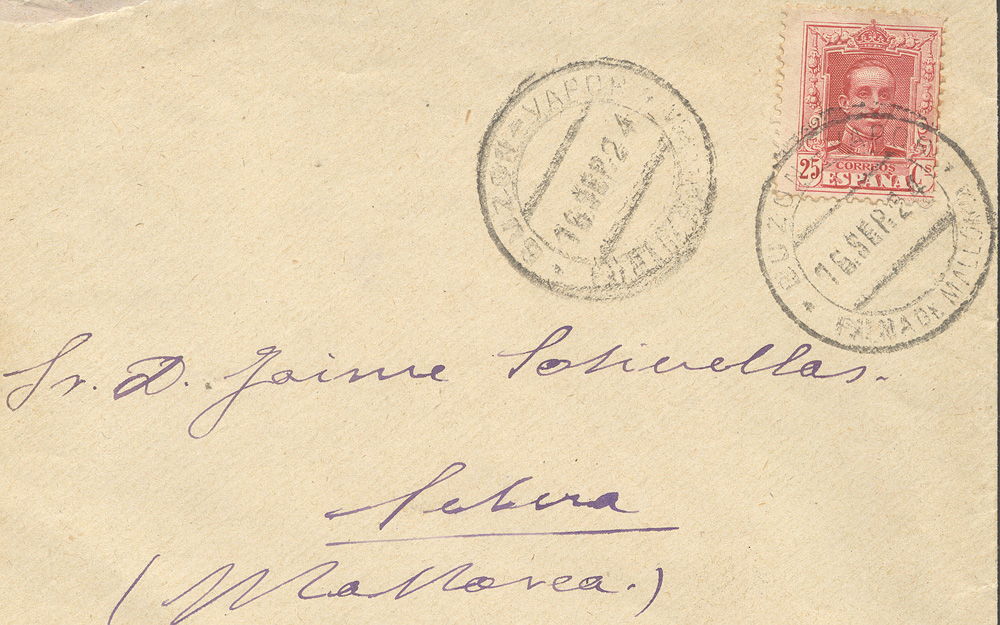 BUZON-VAPOR
16.SEP.24
CORREOS
25 ESPAÑA Cs
BUZON
16.SEP.24
PALMA DE MALLORCA
Sr. D. Jaime Sotivellas.
(Mallorca.)